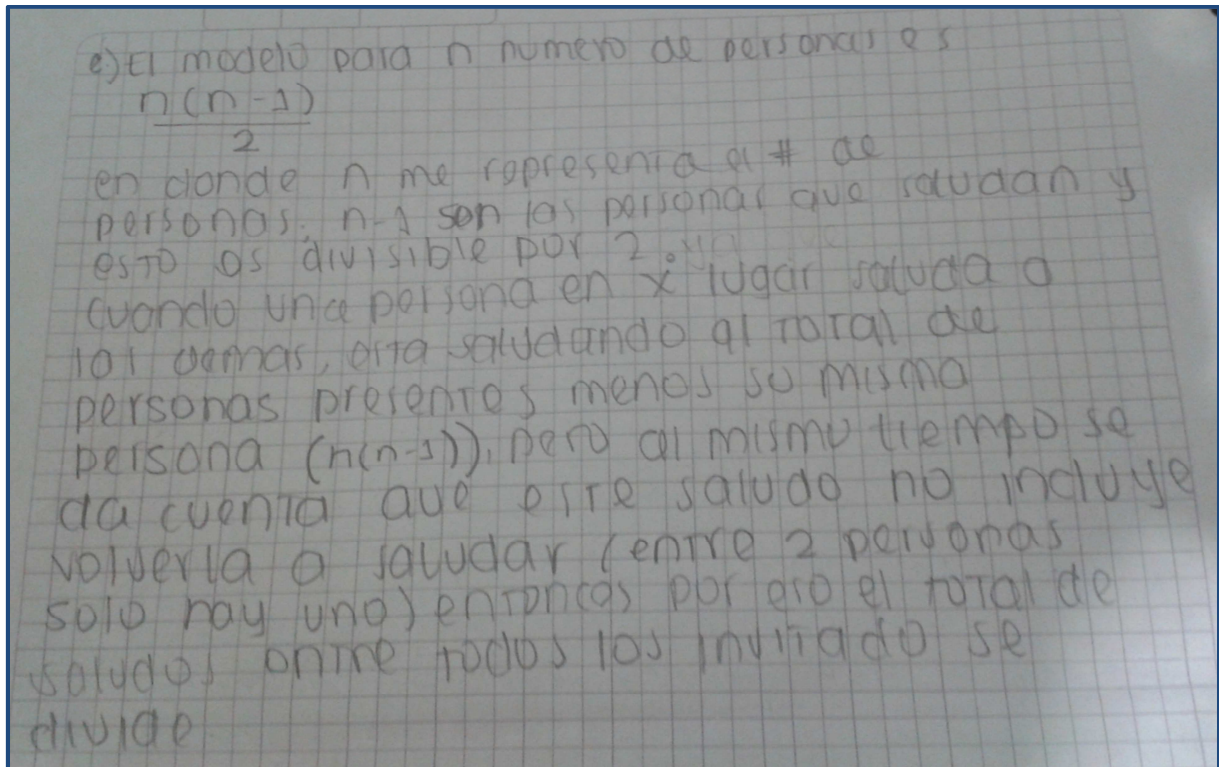 e) El modelo para n numero de personas es
n(n-1)
2
en donde n me representa al # de
personas, n-1 son las personas que saludan y
esto es divisible por 2
cuando una persona en x° lugar saluda a
los demas, esta saludando al total de
personas presentes menos su misma
persona (n(n-1)), pero al mismo tiempo se
da cuenta que este saludo no incluye
volverla a saludar (entre 2 personas
solo hay uno) entonces por eso el total de
saludos entre todos los invitado se
divide